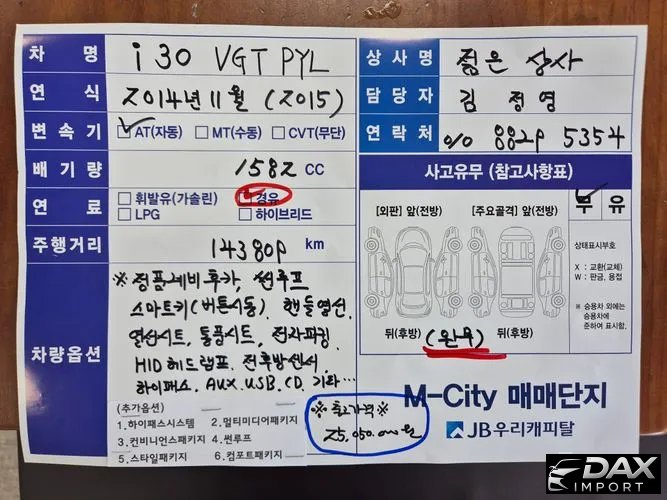 차 명 i30 VGT PYL
연 식 2014년11월 (2015)
변 속 기 AT(자동) MT(수동) CVT(무단)
배 기 량 1582 CC
연 료 휘발유(가솔린) 경유
LPG 하이브리드
주행거리 143809 km
차량옵션
※정품네비후카, 썬루프
스마트키(버튼시동), 핸들열선,
열선시트, 통풍시트, 전자파킹
HID헤드램프, 전후방센서,
하이패스, AUX, USB, CD, 기타…
(추가옵션)
1.하이패스시스템 2.멀티미디어패키지
3.컨비니언스패키지 4.썬루프
5.스타일패키지 6.컴포트패키지
※출고가격※
25,050,000원
상 사 명 젊은 상사
담 당 자 김 정영
연 락 처 010 8829 5354
사고유무 (참고사항표)
[외판] 앞(전방) [주요골격] 앞(전방)
무 유
상태표시부호
X : 교환(교체)
W : 판금, 용접
※ 승용차 외에는
승용차에
준하여 표시함.
뒤(후방) (완무) 뒤(후방)
M-City 매매단지
JB우리캐피탈
DAX
IMPORT